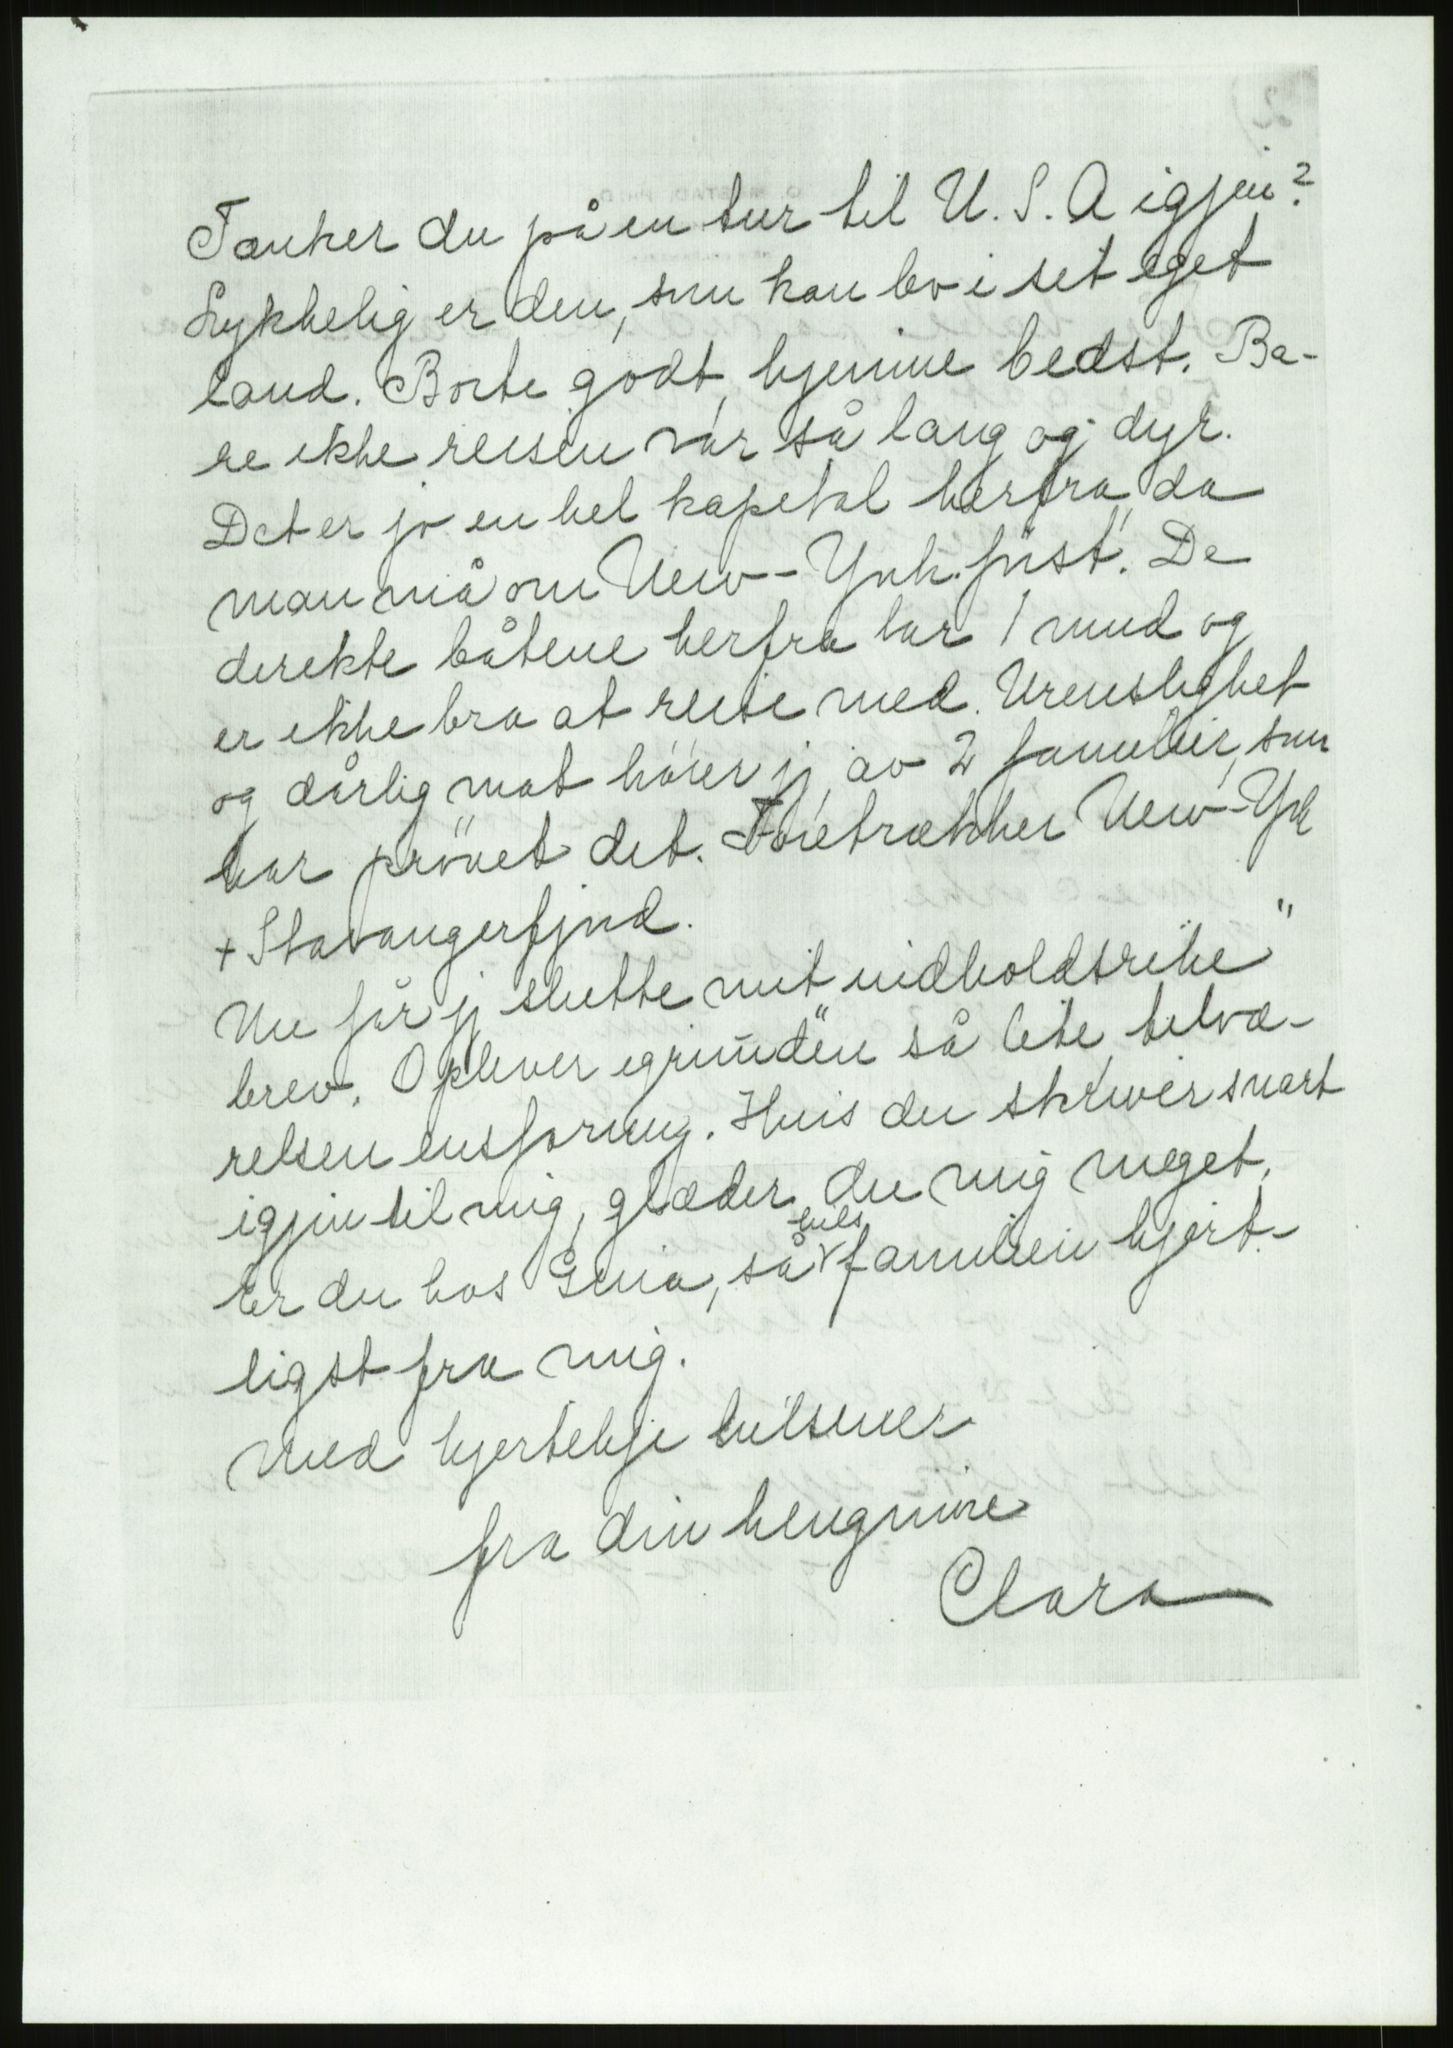 Tænker du på en tur til U.S.A igjen?
Lykkelig er den, som kan bo i set eget
land. Borte godt, hjemme bedst. Ba-
re ikke reisen var så lang og dyr.
Det er jo en hel kapetal herfra, da
man må om New-York først. De
direkte båtene herfra tar 1 mnd og
er ikke bra at reise med. Urenslighet
og dårlig mat hører jeg av 2 familier, som
har prøvet det. Foretrækker New-York
+ Stavangerfjord.
Nu får jeg slutte mit "indholdsrike"
brev. Oplever i grunden så lite, tilvæ-
relsen ensformig. Hvis du skriver snart
igjen til mig, glæder du mig meget.
Er du hos Gina, så hils familien hjert-
ligst fra mig.
Med hjertelige hilsener
fra din hengivne
Clara